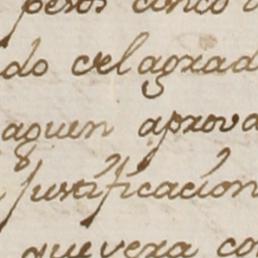 pesos cinco
do el agrad
aquen aprova
justificacion
que vera co